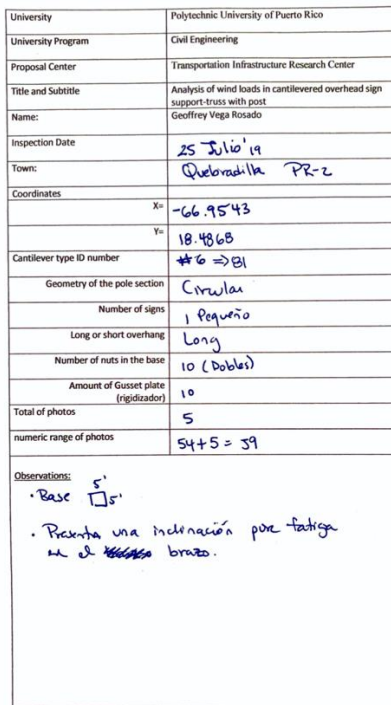 University Polytechnic University of Puerto Rico
University Program Civil Engineering
Proposal Center Transportation Infrastructure Research Center
Title and Subtitle Analysis of wind loads in cantilevered overhead sign
support-truss with post
Name: Geoffrey Vega Rosado
Inspection Date 25 Julio '19
Town: Quebradilla PR-2
Coordinates
X= -66.9543
Y= 18.4868
Cantilever type ID number #6 => 81
Geometry of the pole section Circular
Number of signs 1 Pequeño
Long or short overhang Long
Number of nuts in the base 10 (Dobles)
Amount of Gusset plate 10
(rigidizador)
Total of photos 5
numeric range of photos 54+5 = 59
Observations:
5'
• Base 5'
• Presenta una inclinación pure fatiga
en el brazo.